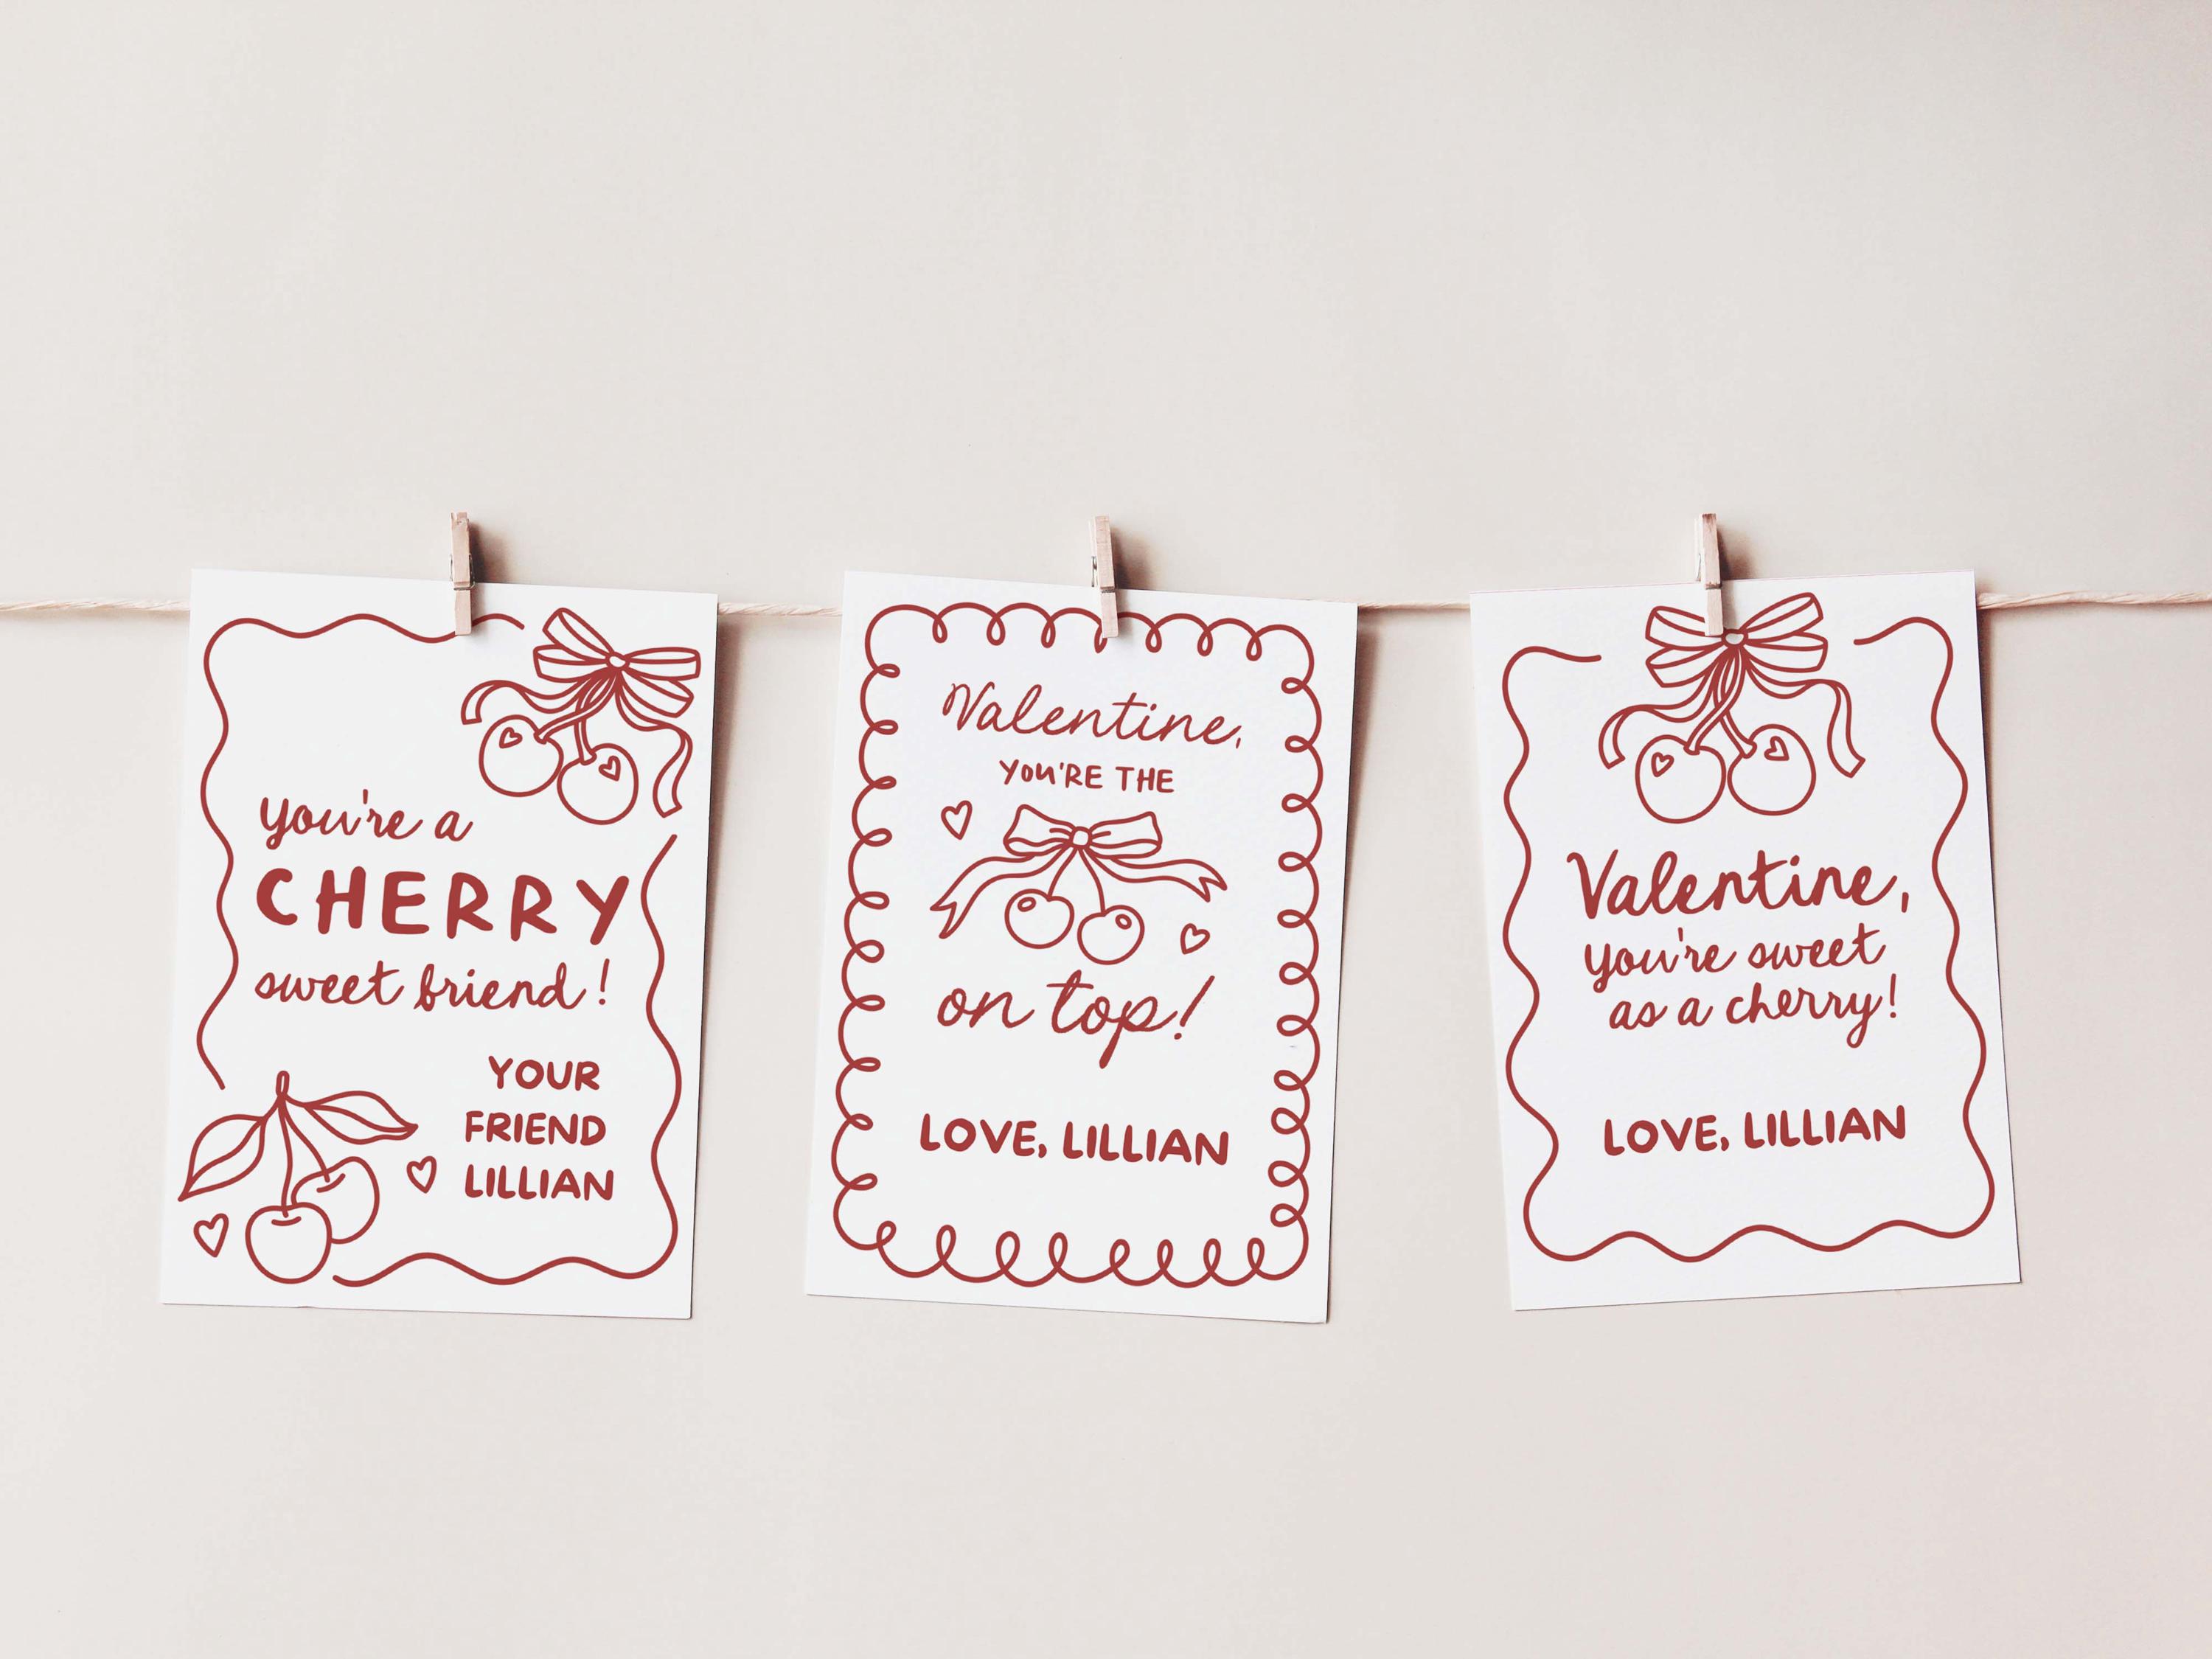 you're a
CHERRY
sweet friend!
YOUR
FRIEND
LILLIAN
Valentine,
YOU'RE THE
on top!
LOVE, LILLIAN
Valentine,
you're sweet
as a cherry!
LOVE, LILLIAN